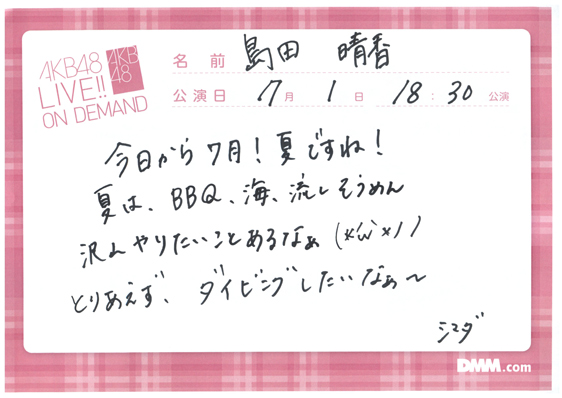 AKB48
LIVE!!
ON DEMAND
AKB
48
名前 島田 晴香
公演日 7月 1日 18:30 公演
今日から7月!夏ですね!
夏は、BBQ、海、流しそうめん
沢山やりたいことあるなぁ(*'ω'*)
とりあえず、ダイビングしたいなぁ〜
シマダ
DMM.com